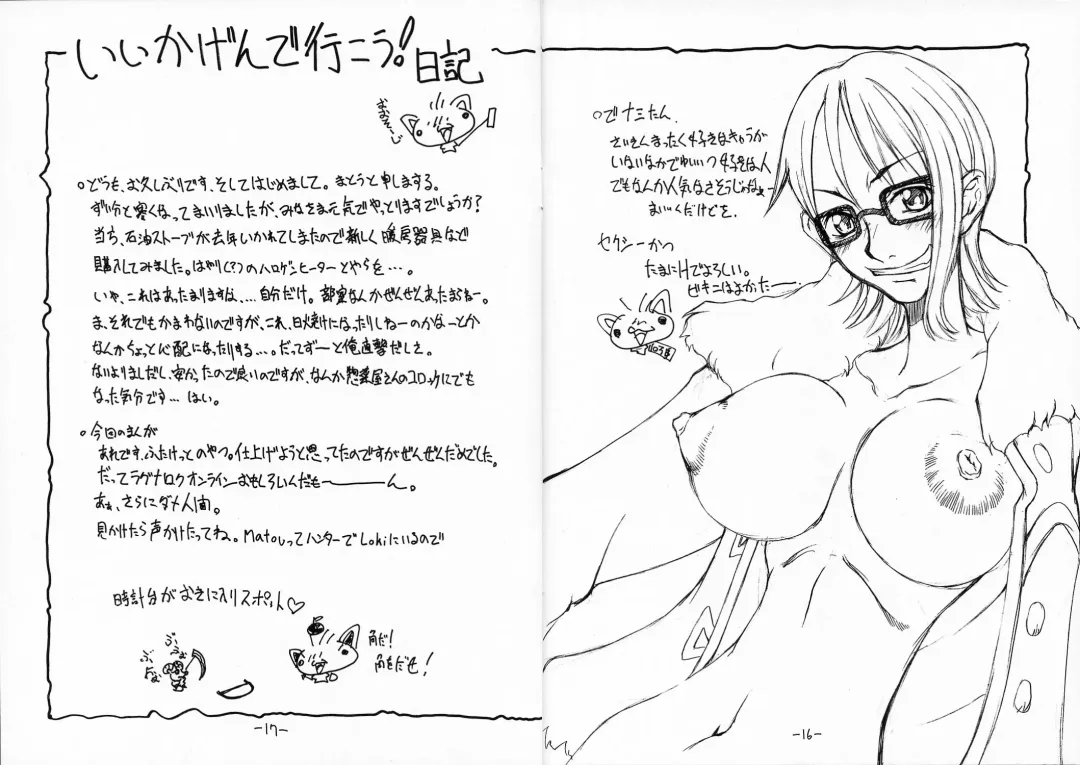 いいかげんで行こう!日記
○どうも、お久しぶりです、そしてはじめまして。まとうと申しまする。
ずい分と寒くなってまいりましたが、みなさま元気でやっとりますでしょうか?
当方、石油ストーブが去年いかれてしまたので新しく暖房器具など
購入してみました。はやり(?)のハロゲンヒーターとやらを…。
いや、これはあったまりますね、…自分だけ。部室なんかぜんぜんあったまらねー。
ま、それでもかまわないのですが、これ、日焼けになったりしねーのかなーとか
なんかちょっと心配になったりする…。だってずーと俺直撃だしさ。
ないよりましだし、安かったので良いのですが、なんか惣菜屋さんのコロッケにでも
なった気分です…はい。
○今回のまんが
あれです、ふたけっとのやつ。仕上げようと思ってたのですがぜんぜんだめでした。
だってラグナロクオンラインおもしろいんだもーーん。
あぁ、さらにダメ人間。
見かけたら声かけたってね。Matouってハンターで Lokiにいるので
時計台がお気に入りスポット♡
角だ!
角をだせ!
-17-
○で ナミたん、
さいきんまったく好きなきゃらが
いないなかでゆいいつ好きな人
でもなんか人気なさそうじゃねぇー
まいーくだけどさ。
セクシーかつ
たまにHでよろしい。
ビキニはよかたーー・
-16-